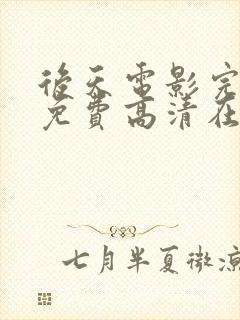 後天電影完
免費高清在
七月半夏微涼